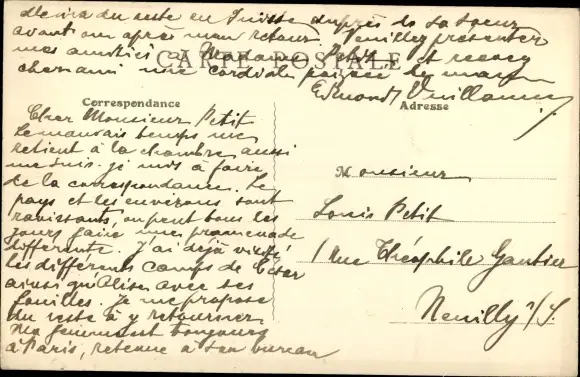 de ira du reste en Suisse auprès de sa soeur
avant ou après mon retour. Veuillez présenter
mes amitiés à Madame Petit et recevez
cher ami une cordiale poignée de main
CARTE POSTALE
Edmond Vuillaume
Correspondance
Adresse
Cher Monsieur Petit
Le mauvais temps me
retient à la chambre aussi
me suis-je mis à faire
de la correspondance. Le
pays et les environs sont
ravissants, on peut tous les
jours faire une promenade
différente. J'ai déjà visité
les différents camps de César
ainsi qu'Alise avec ses
fouilles. Je me propose
du reste d'y retourner.
Ma femme est toujours
à Paris, retenue à son bureau
Monsieur
Louis Petit
1 Rue Théophile Gautier
Neuilly s/S.